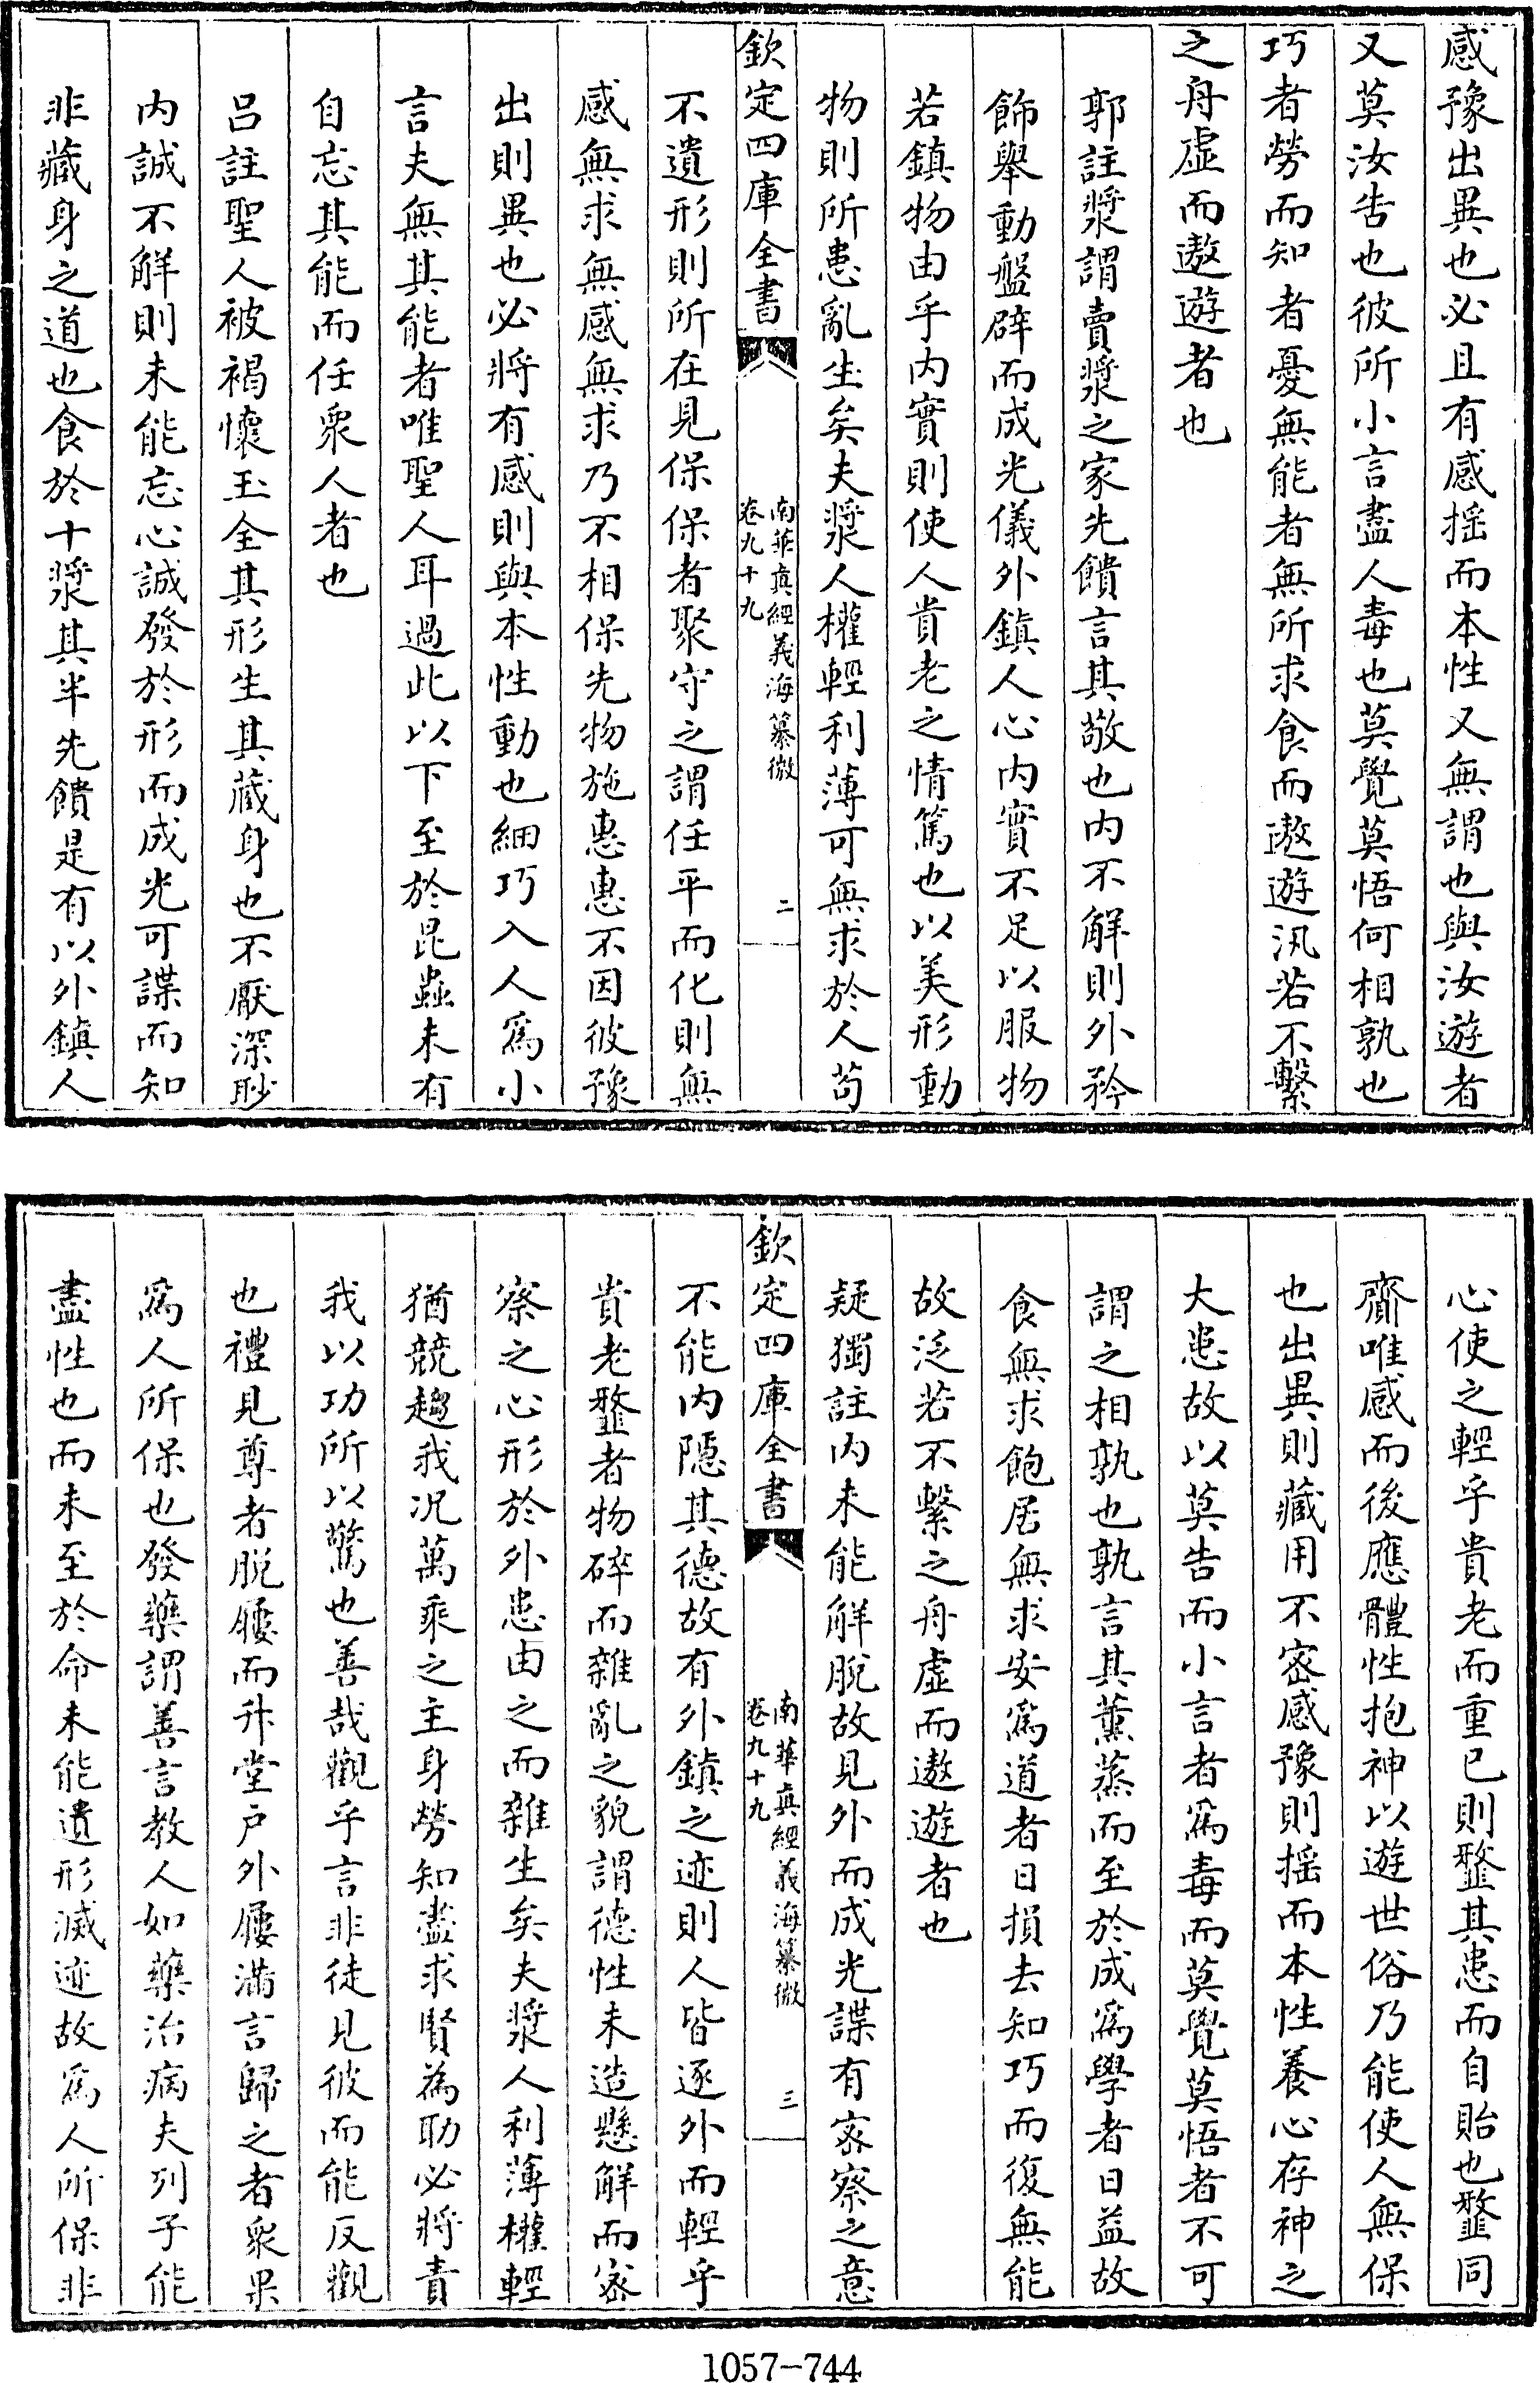 感豫出異也必且有感揺而本性又無謂也與汝遊者
又莫汝告也彼所小言盡人毒也莫覺莫悟何相孰也
巧者勞而知者憂無能者無所求食而遨遊汎若不繫
之舟虛而遨遊者也
郭註漿謂賣漿之家先饋言其敬也内不解則外矜
飾舉動盤辟而成光儀外鎮人心内實不足以服物
若鎮物由乎内實則使人貴老之情篤也以美形動
物則所患亂生矣夫漿人權輕利薄可無求於人苟
欽定四庫全書
南華真經義海纂微
卷九十九
二
不遺形則所在見保保者聚守之謂任平而化則無
感無求無感無求乃不相保先物施惠惠不因彼豫
出則異也必將有感則與本性動也細巧入人為小
言夫無其能者唯聖人耳過此以下至於昆蟲未有
自忘其能而任衆人者也
呂註聖人被褐懷玉全其形生其藏身也不厭深眇
内誠不解則未能忘心誠發於形而成光可諜而知
非藏身之道也食於十漿其半先饋是有以外鎮人
心使之輕乎貴老而重已則韲其患而自貽也韲同
齏唯感而後應體性抱神以遊世俗乃能使人無保
也出異則藏用不宻感豫則揺而本性養心存神之
大患故以莫告而小言者為毒而莫覺莫悟者不可
謂之相孰也孰言其薫蒸而至於成為學者日益故
食無求飽居無求安為道者日損去知巧而復無能
故泛若不繫之舟虛而遨遊者也
疑獨註内未能解脫故見外而成光諜有宻察之意
欽定四庫全書
南華真經義海纂微
卷九十九
三
不能内隱其德故有外鎮之迹則人皆逐外而輕乎
貴老韲者物碎而雜亂之貌謂德性未造懸解而宻
察之心形於外患由之而雜生矣夫漿人利薄權輕
猶競趨我况萬乘之主身勞知盡求賢為助必將責
我以功所以驚也善哉觀乎言非徒見彼而能反觀
也禮見尊者脫屨而升堂户外屨滿言歸之者衆果
為人所保也發藥謂善言教人如藥治病夫列子能
盡性也而未至於命未能遺形滅迹故為人所保非
1057-744